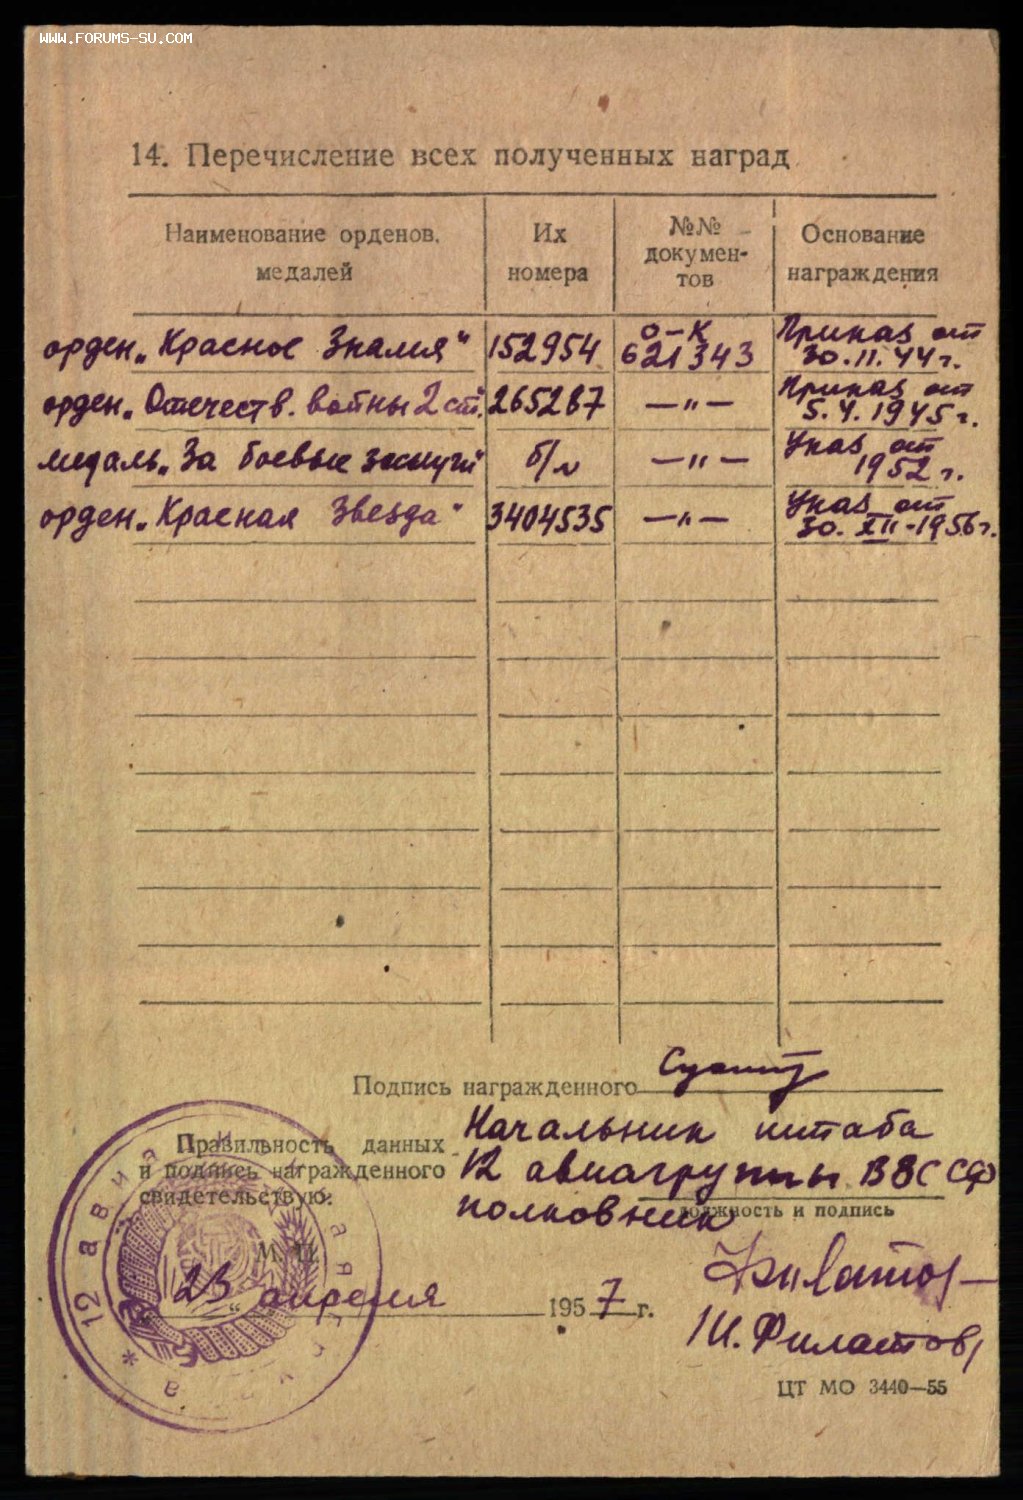 WWW.FORUMS-SU.COM
14. Перечисление всех полученных наград
Наименование орденов, медалей | Их номера | №№ докумен-тов | Основание награждения
орден „Красное Знамя“ | 152954 | О-К 621343 | Приказ от 30.11.44г.
орден „Отечеств. войны 2 ст.“ | 265287 | —"— | Приказ от 5.4.1945г.
медаль „За боевые заслуги“ | б/н | —"— | Указ от 1952г.
орден „Красная Звезда“ | 3404535 | —"— | Указ от 30.XII-1956г.
Подпись награжденного
Правильность данных
и подпись награжденного
свидетельствую:
Начальник штаба
12 авиагруппы ВВС СФ
полковник
должность и подпись
М. П.
апреля 1957 г.
Филатов
/И. Филатов/
ЦТ МО 3440—55
12 авиа